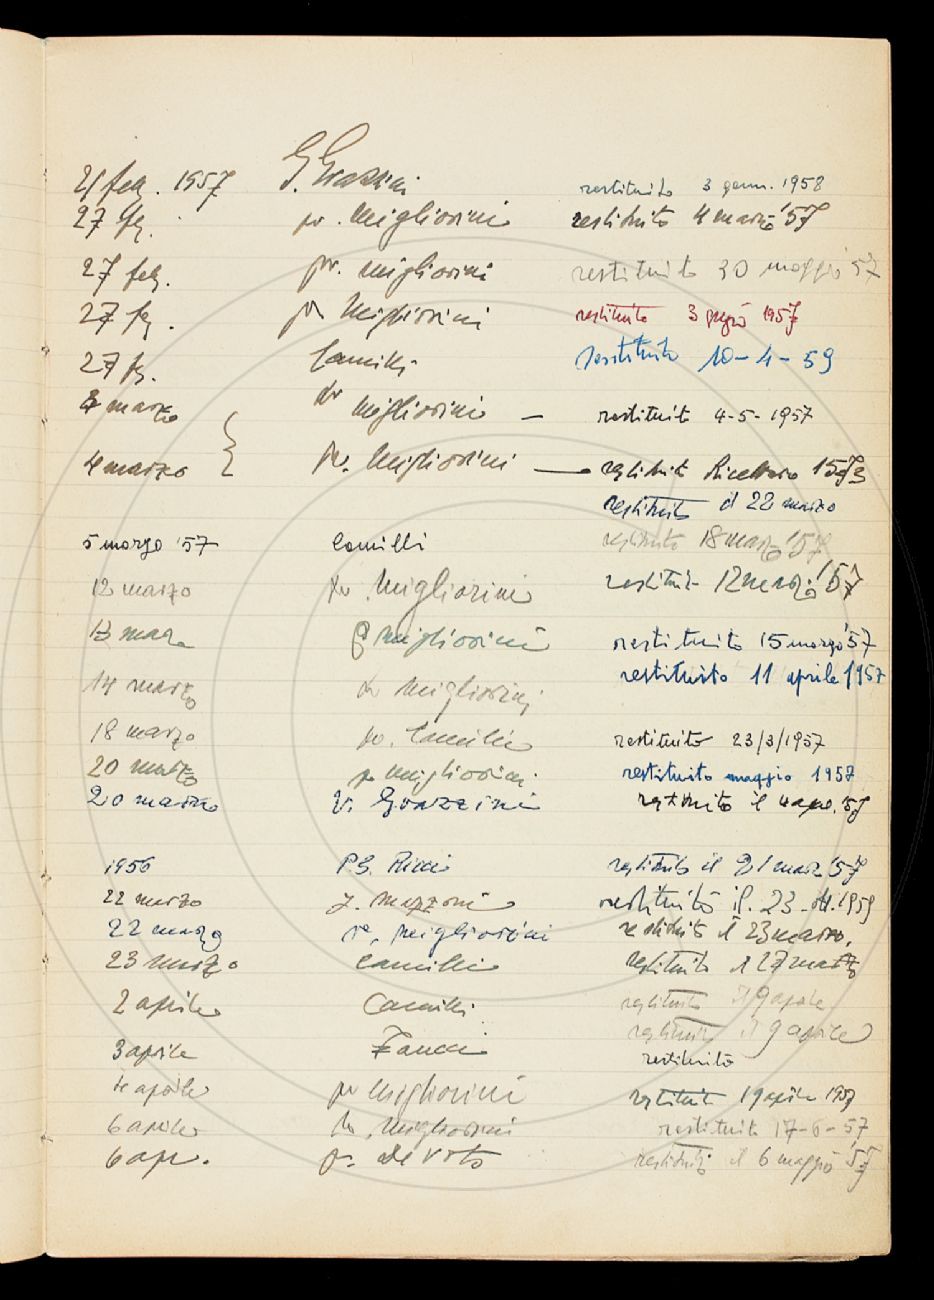 21 feb. 1957 G. Grazzini restituito 3 genn. 1958
27 fe. pr. Migliorini restituito 4 marzo '57
27 feb. pr. Migliorini restituito 30 maggio 57
27 fe. pr Migliorini restituito 3 1957
27 fe. Camilli restituito 10-4-59
marzo Migliorini — restituito 4-5-1957
4 marzo pr. Migliorini — restituito Ricettario 1573
restituito il 22 marzo
5 marzo '57 Camilli restituito 18 marzo '57
12 marzo Migliorini restituito 12 marzo '57
13 marzo Migliorini restituito 15 marzo '57
restituito 11 aprile 1957
14 marzo Migliorini
18 marzo pr. Camilli restituito 23/3/1957
20 marzo pr Migliorini restituito maggio 1957
20 marzo Grazzini restituito il 4 apr. '57
1956 P.G. Ricci restituito il 21 marzo '57
22 marzo Mazzoni restituito il. 23 ott. 1959
22 marzo Migliorini restituito il 23 marzo.
23 marzo Camilli restituito il 27 marzo
2 aprile Camilli restituito il 9 aprile
restituito il 9 aprile
3 aprile restituito
4 aprile pr Migliorini restituito 19 aprile 1957
6 aprile Migliorini restituito 17-6-57
6 apr. p. Devoto restituito il 6 maggio '57